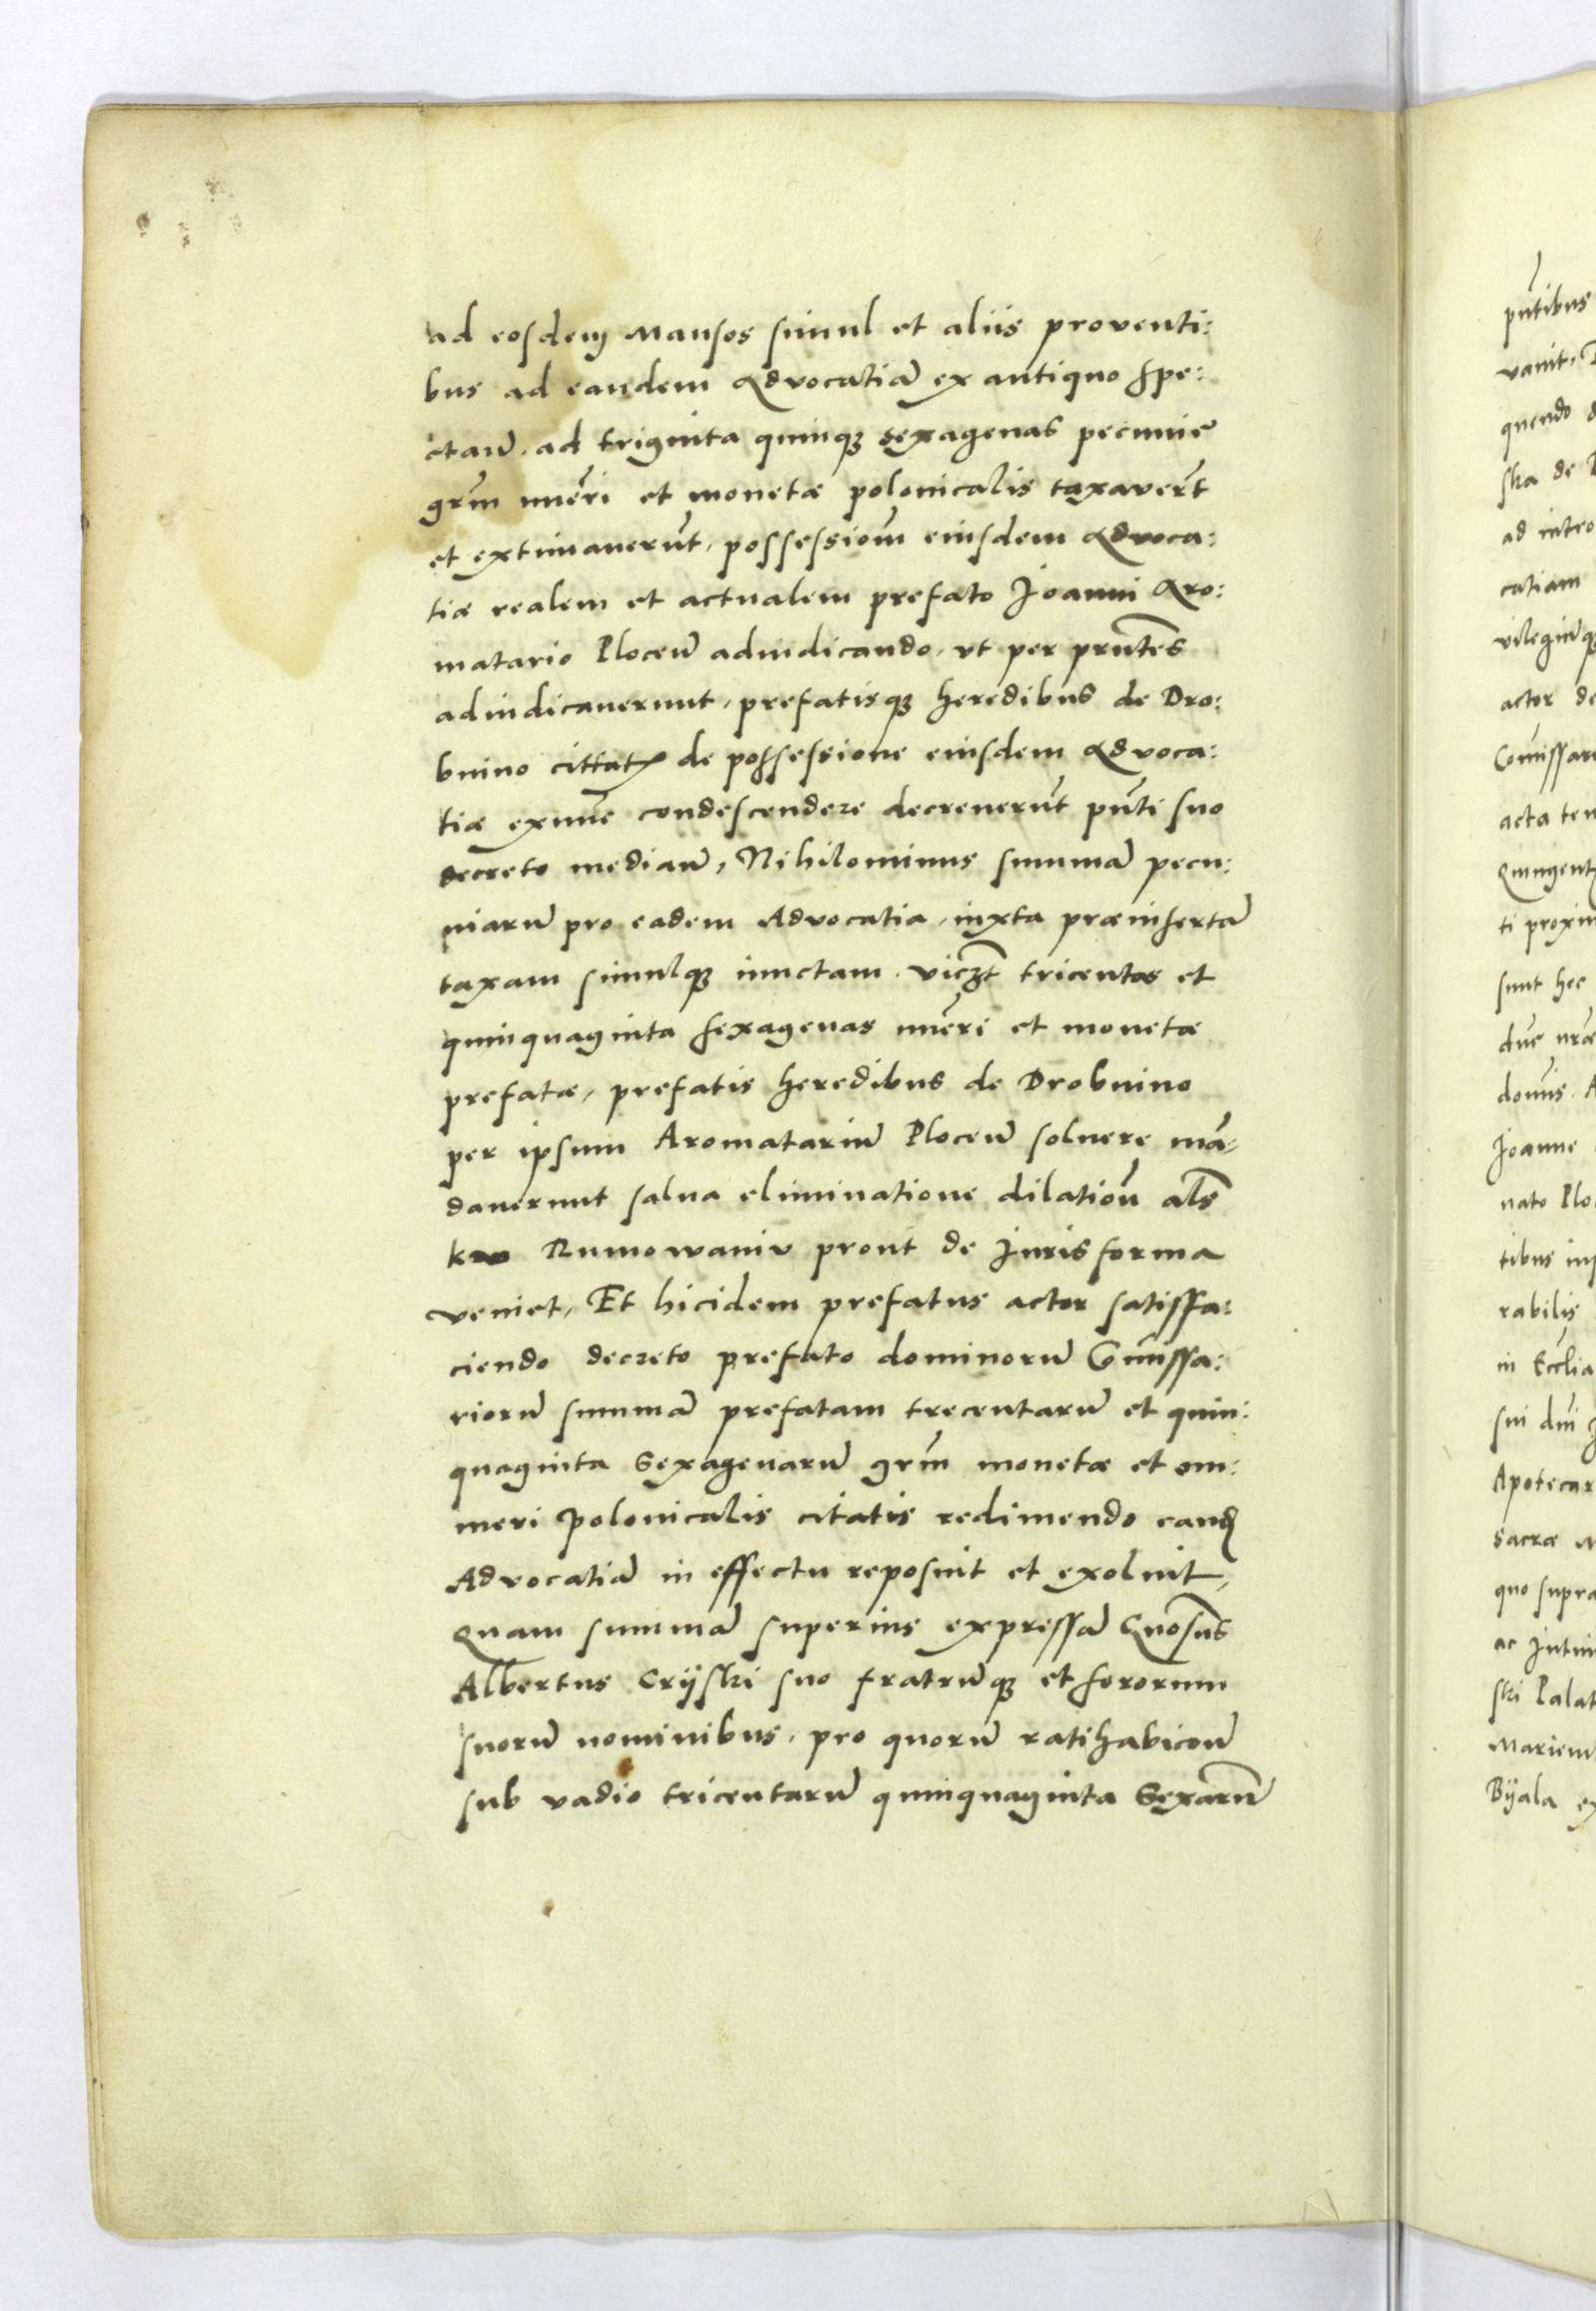 ad eosdem Mansos simul et aliis proventi:
bus ad eandem Advocatiā ex antiquo spe:
ctaн̄. ad triginta quinqꝫ sexagenas pecunie
grm̄ nūeri et monetæ polonicalis taxaverūt
et extimaverūt, possessionē eiusdem Advoca:
tiæ realem et actualem prefato Joanni Aro:
matario Plocen̄ adiudicando. ut per prn̄tes
adiudicaverunt, prefatisqꝫ heredibus de Dro:
bnino cittatꝭ de possessione eiusdem Advoca:
tiæ exnūc condescendere decreverūt pn̄ti suo
decreto median̄, Nihilominus summā pecu:
niarū pro eadem Advocatia, iuxta præinsertā
taxam simulqꝫ iunctam. viczt̄ tricentas et
quinquaginta sexagenas nūeri et monetæ
prefatæ, prefatis heredibus de Drobnino
per ipsum Aromatariū Plocen̄ solvere mā,
daverunt salva eliminatione dilation̄ als̄
Rumowaniv prout de Juris forma
veniet, Et hicidem prefatus actor satisfa:
ciendo decreto prefato dominorū Com̄issa:
riorū summā prefatam trecentarū et quin:
quaginta Sexagenarū grm̄ monetæ et nu:
meri polonicalis citatis redimendo eand̄
Advocatiā in effectu reposuit et exolvit,
Quam summā superius expressā Gnosus̄
Albertus Crijski suo fratrūqꝫ et sororum
suorū nominibus, pro quorū ratihabicon̄
sub vadio tricentarū quinquaginta Sexarū

pn̄tibus
quendo
ska de
ad intro
catiam
actor de
Com̄issari
acta
ti proxim
sunt hec
Joanne
nato Plo
rabilis
in Eccl̄ia
sui dn̄i
Apotecar
sacræ
quo supra
ski Palat
Bijala